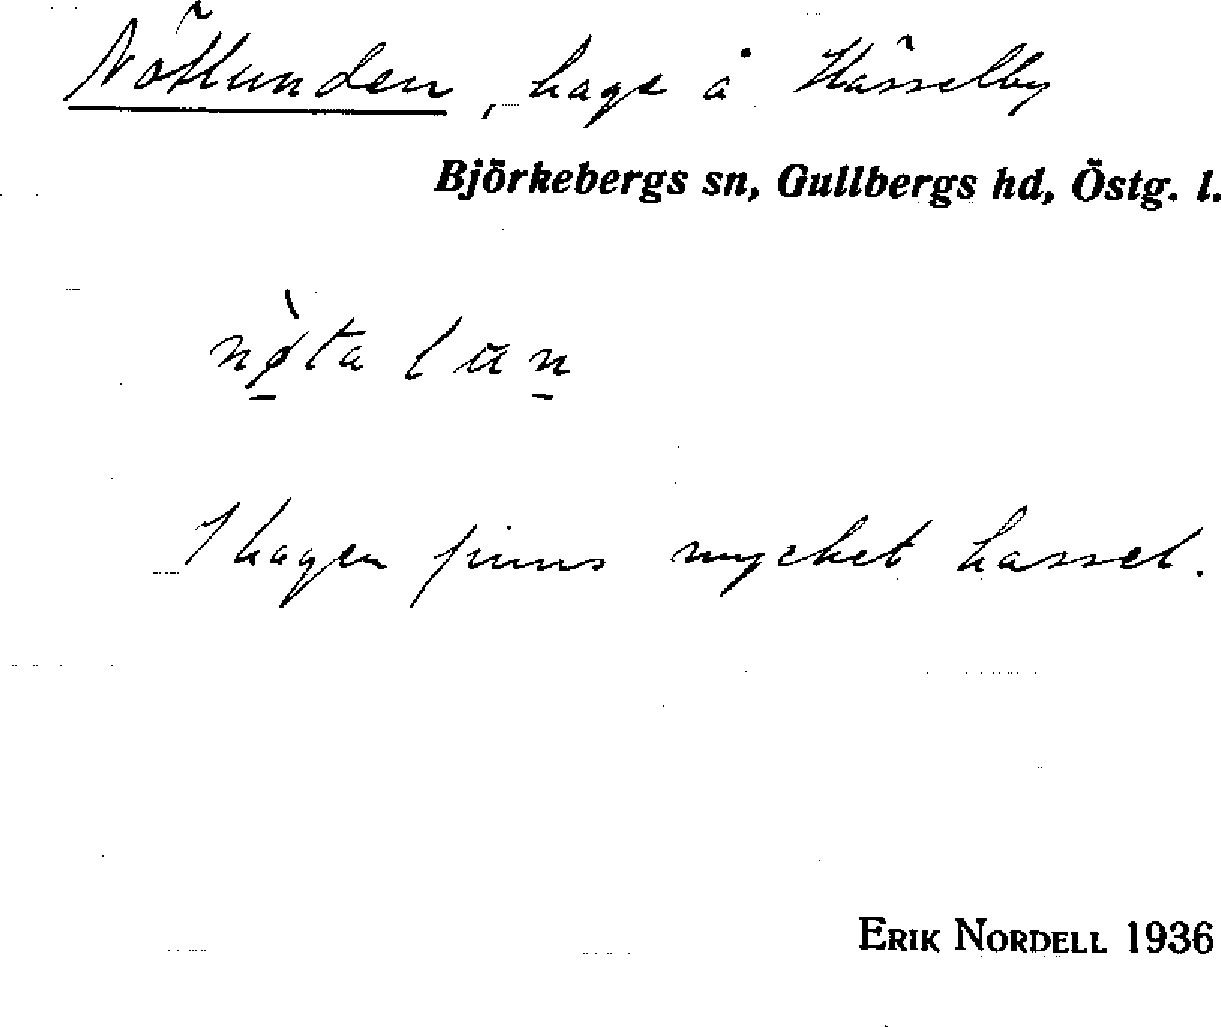 Nötlunden, hage å Hässelby
Björkebergs sn, Gullbergs hd, Östg. l.
nø̀ta lun
I hagen finns mycket hassel.
ERIK NORDELL 1936